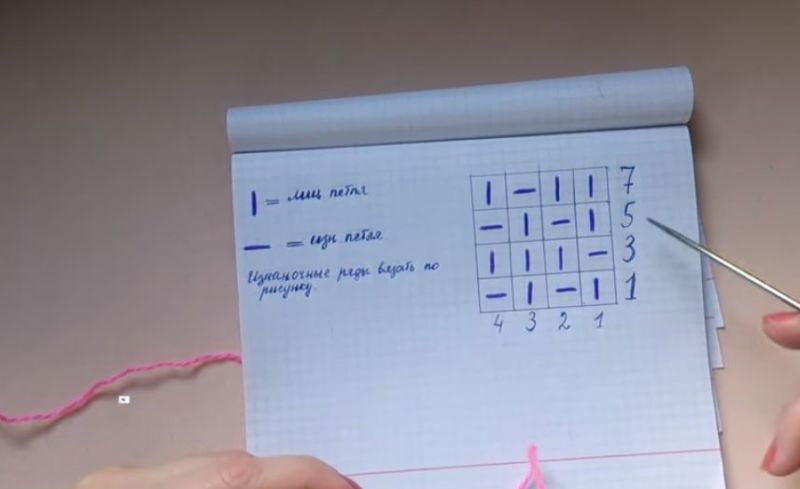 | = лиц петля
— = изн. петля
Изнаночные ряды вязать по
рисунку.
| — | | 7
— | — | 5
| | | — 3
— | — | 1
4 3 2 1